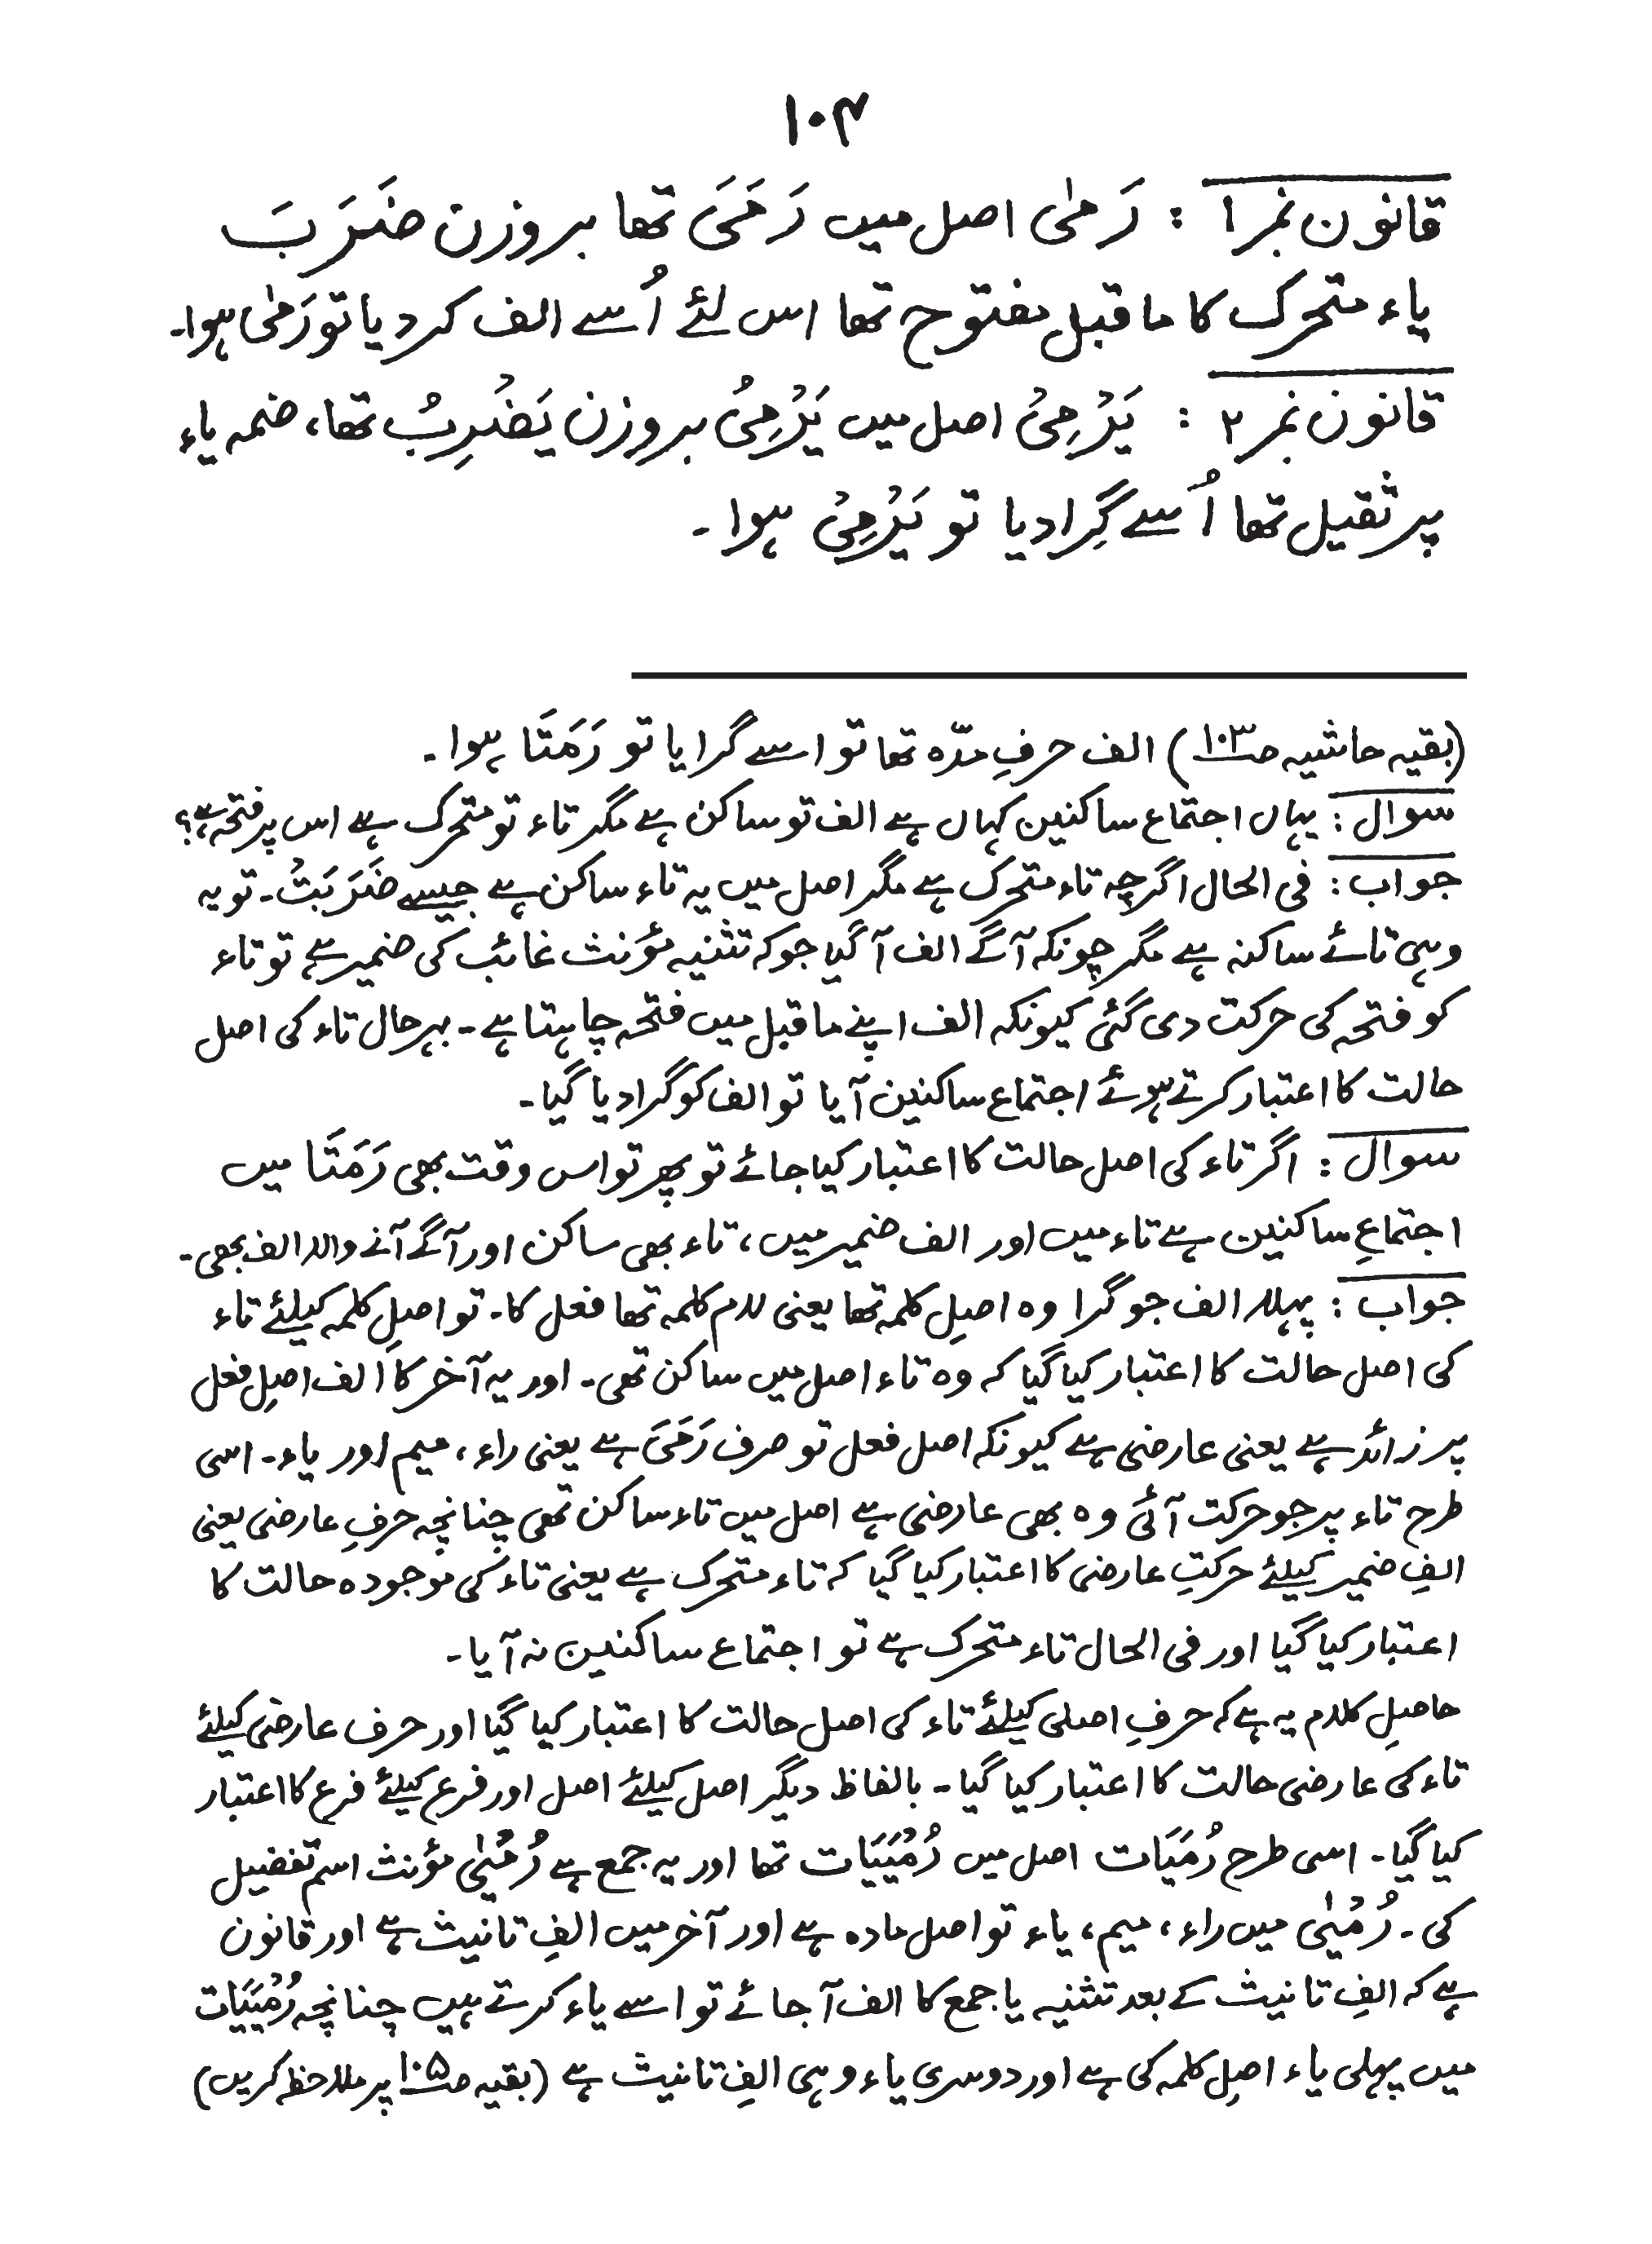 ۱۰۴
قانون نمبر ۱ : رَمٰی اصل میں رَمَیَ تھا بروزن ضَرَبَ
یاء متحرک کا ماقبل مفتوح تھا اس لئے اُسے الف کردیا تو رَمٰی ہوا۔
قانون نمبر ۲ : یَرْمِیْ اصل میں یَرْمِیُ بروزن یَضْرِبُ تھا، ضمہ یاء
پر ثقیل تھا اُسے گِرادیا تو یَرْمِیْ ہوا۔
(بقیہ حاشیہ صـ۱۰۳) الف حرفِ مدّہ تھا تو اسے گرایا تو رَمَتَا ہوا۔
سوال : یہاں اجتماع ساکنین کہاں ہے الف تو ساکن ہے مگر تاء تو متحرک ہے اس پر فتحہ ہے؟
جواب : فی الحال اگرچہ تاء متحرک ہے مگر اصل میں یہ تاء ساکن ہے جیسے ضَرَبَتْ۔ تو یہ
وہی تائے ساکنہ ہے مگر چونکہ آگے الف آگیا جو کہ تثنیہ مؤنث غائب کی ضمیر ہے تو تاء
کو فتحہ کی حرکت دی گئی کیونکہ الف اپنے ماقبل میں فتحہ چاہتا ہے۔ بہرحال تاء کی اصل
حالت کا اعتبار کرتے ہوئے اجتماع ساکنین آیا تو الف کو گرادیا گیا۔
سوال : اگر تاء کی اصل حالت کا اعتبار کیا جائے تو پھر تو اس وقت بھی رَمَتَا میں
اجتماعِ ساکنین ہے تاء میں اور الف ضمیر میں، تاء بھی ساکن اور آگے آنے والا الف بھی۔
جواب : پہلا الف جو گرا وہ اصلِ کلمہ تھا یعنی لام کلمہ تھا فعل کا۔ تو اصلِ کلمہ کیلئے تاء
کی اصل حالت کا اعتبار کیا گیا کہ وہ تاء اصل میں ساکن تھی۔ اور یہ آخر کا الف اصلِ فعل
پر زائد ہے یعنی عارضی ہے کیونکہ اصل فعل تو صرف رَمَیَ ہے یعنی راء، میم اور یاء۔ اسی
طرح تاء پر جو حرکت آئی وہ بھی عارضی ہے اصل میں تاء ساکن تھی چنانچہ حرفِ عارضی یعنی
الفِ ضمیر کیلئے حرکتِ عارضی کا اعتبار کیا گیا کہ تاء متحرک ہے یعنی تاء کی موجودہ حالت کا
اعتبار کیا گیا اور فی الحال تاء متحرک ہے تو اجتماع ساکنین نہ آیا۔
حاصلِ کلام یہ ہے کہ حرفِ اصلی کیلئے تاء کی اصل حالت کا اعتبار کیا گیا اور حرف عارضی کیلئے
تاء کی عارضی حالت کا اعتبار کیا گیا۔ بالفاظ دیگر اصل کیلئے اصل اور فرع کیلئے فرع کا اعتبار
کیا گیا۔ اسی طرح رُمَیَات اصل میں رُمْیَیَات تھا اور یہ جمع ہے رُمْیٰی مؤنث اسم تفضیل
کی۔ رُمْیٰی میں راء، میم، یاء تو اصل مادہ ہے اور آخر میں الفِ تانیث ہے اور قانون
ہے کہ الفِ تانیث کے بعد تثنیہ یا جمع کا الف آجائے تو اسے یاء کرتے ہیں چنانچہ رُمْیَیَات
میں پہلی یاء اصلِ کلمہ کی ہے اور دوسری یاء وہی الفِ تانیث ہے (بقیہ صـ۱۰۵ پر ملاحظہ کریں)